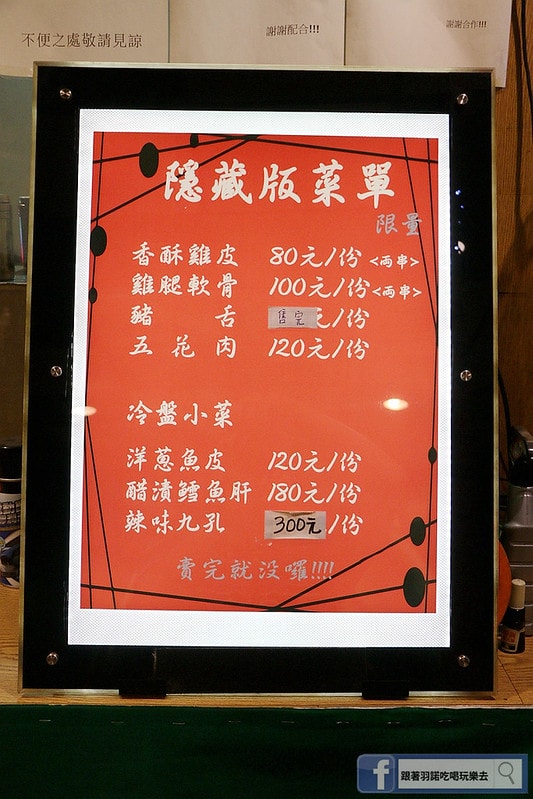 不便之處敬請見諒
謝謝配合!!!
謝謝合作!!!
隱藏版菜單
限量
香酥雞皮 80元/份 <両串>
雞腿軟骨 100元/份 <両串>
豬舌 售完元/份
五花肉 120元/份
冷盤小菜
洋蔥魚皮 120元/份
醋漬鱈魚肝 180元/份
辣味九孔 300元/份
賣完就沒囉!!!!
跟著羽諾吃喝玩樂去